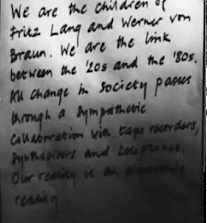 We are the children of
Fritz Lang and Werner von
Braun. We are the link
between the '20s and the '80s.
All change in society passes
through a sympathetic
collaboration with tape recorders,
synthesisers and telephones.
Our reality is an electronic
reality